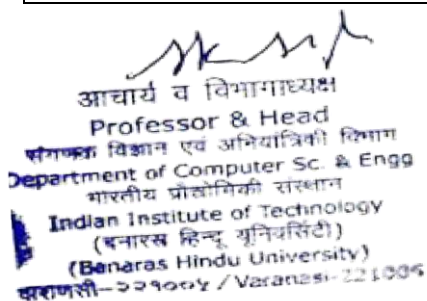 आचार्य व विभागाध्यक्ष
Professor & Head
संगणक विज्ञान एवं अभियांत्रिकी विभाग
Department of Computer Sc. & Engg
भारतीय प्रौद्योगिकी संस्थान
Indian Institute of Technology
(बनारस हिन्दू यूनिवर्सिटी)
(Banaras Hindu University)
वाराणसी-२२१००५ / Varanasi-221005